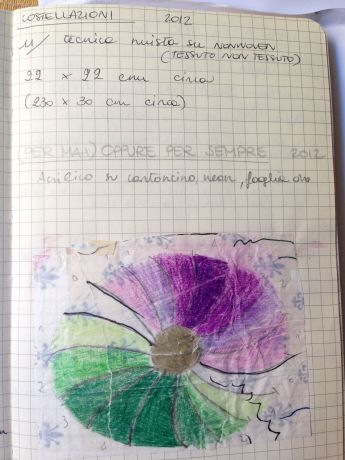 COSTELLAZIONI 2012
M/ tecnica mista su NONWOVEN
(TESSUTO NON TESSUTO)
22 x 22 cm circa
(230 x 30 cm circa)
(PER MAI) OPPURE PER SEMPRE 2012
Acrilico su cartoncino, neon, foglia oro
2
3